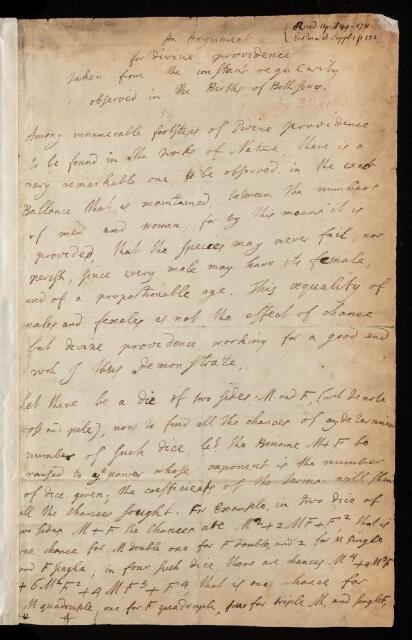 Read April 19. 1711
Entred Suppl: p 152
An Argument
for divine providence
taken from the constant regularity
observed in the Births of Both sexes.
Among innumerable footsteps of Divine providence
to be found in the works of Nature, there is a
very remarkable one to be observed in the exact
Ballance that is maintained, between the numbers
of men and women; for by this means it is
provided, that the species may never fail, nor
perish, since every male may have its female,
and of a proportionable age. This æquality of
males and females is not the effect of chance
but divine providence working for a good end
wch I thus demonstrate,
Let there be a die of two sides M. and F, (wch denote
cross and pile), now to find all the chances of any determinate
number of such dice, let the Binome M+F be
raised to ye power whose exponent is the number
of dice given; the coefficients of the terms will shew
all the chances sought. For Example, in two dice of
two sides M + F the chances are M² + 2MF + F² that is
one chance for M double, one for F double, and 2 for M single
and F single; in four such dice there are chances M⁴ + 4M³F
+ 6M²F² + 4MF³ + F⁴, that is one chance for
M quadruple, one for F quadruple, four for triple M and single F,